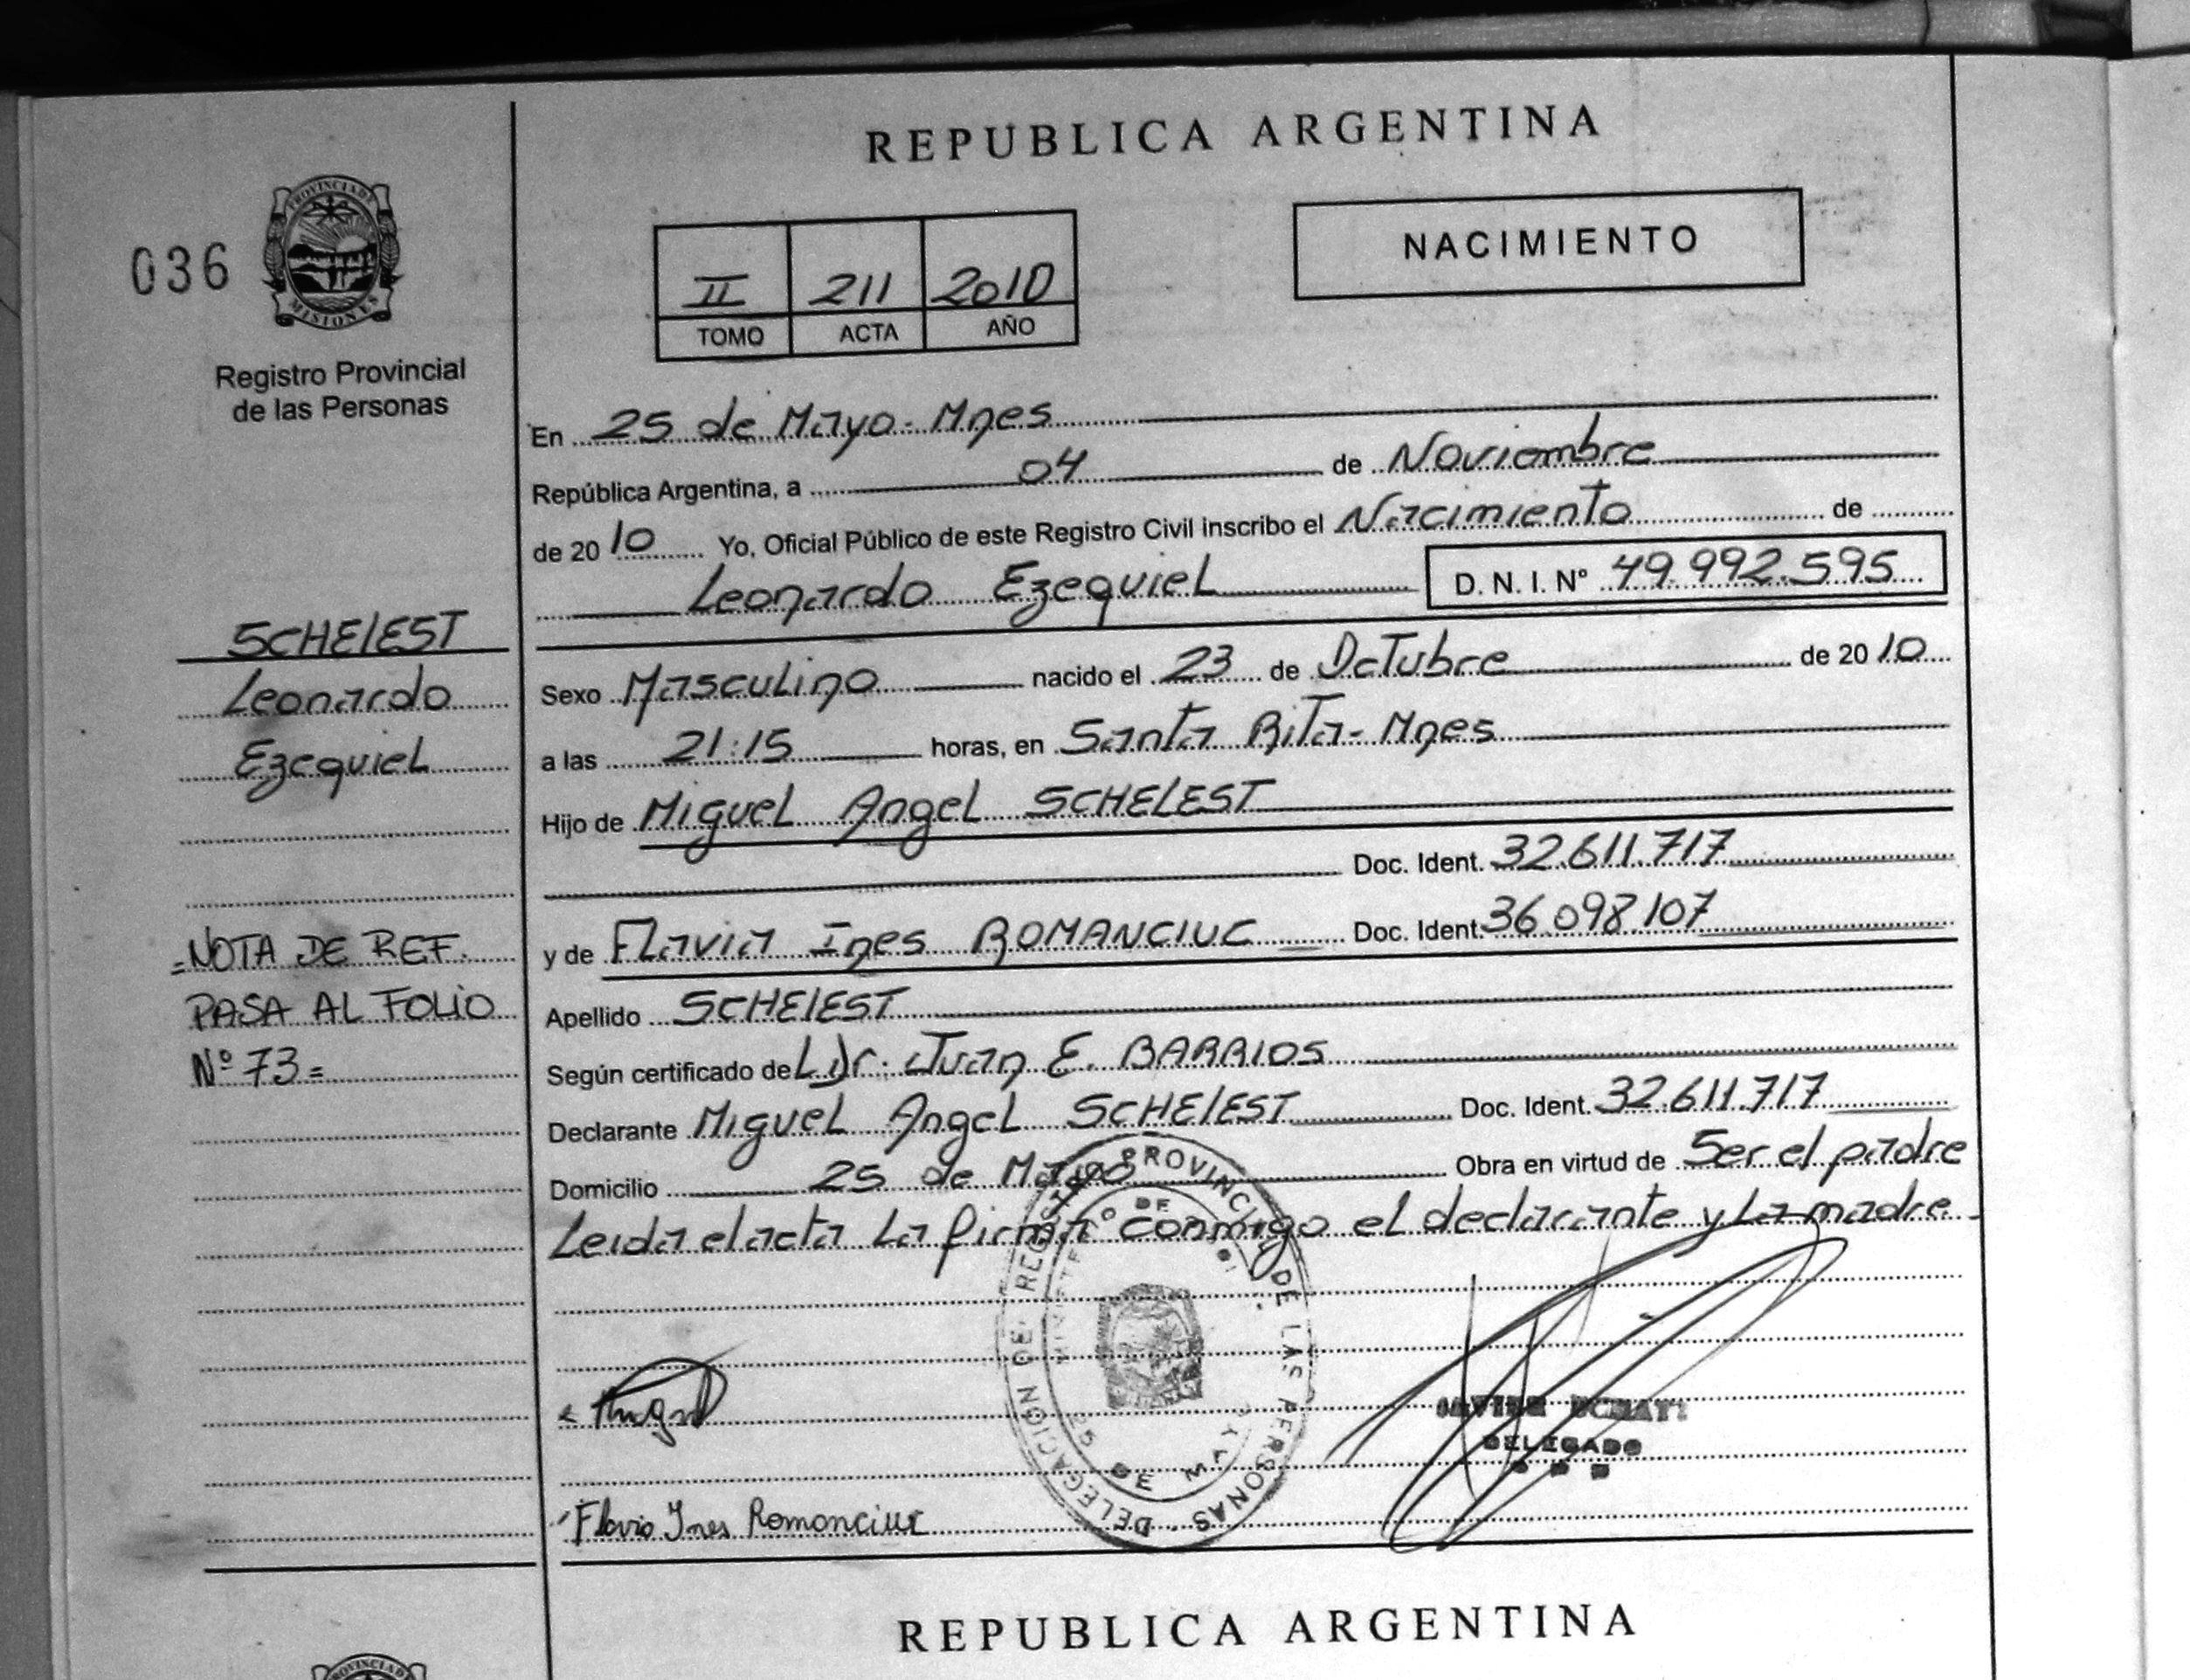 REPUBLICA ARGENTINA
036
PROVINCIA DE
MISIONES
Registro Provincial
de las Personas
II 211 2010
TOMO ACTA AÑO
NACIMIENTO
En 25 de Mayo - Mnes
República Argentina, a 04 de Noviembre
de 20 10 Yo, Oficial Público de este Registro Civil inscribo el Nacimiento de
Leonardo Ezequiel D. N. I. Nº 49.992.595
SCHElEST
Leonardo
Ezequiel
Sexo Masculino nacido el 23 de Octubre de 20 10
a las 21:15 horas, en Santa Rita - Mnes
Hijo de Miguel Angel SCHELEST
Doc. Ident. 32.611.717
y de Flavia Ines ROMANCIUC Doc. Ident. 36.098.107
=NOTA DE REF.
PASA AL FOLIO
Nº 73=
Apellido SCHElEST
Según certificado de L Dr. Juan E. BARRIOS
Declarante Miguel Angel SCHElEST Doc. Ident. 32.611.717
Domicilio 25 de Mayo Obra en virtud de Ser el padre
Leida el acta la firma conmigo el declarante y la madre
DELEGACION DEL REGISTRO PROVINCIAL DE LAS PERSONAS
25 DE MAYO
DELEGADO
Flavia Ines Romanciuc
REPUBLICA ARGENTINA
PROVINCIA DE